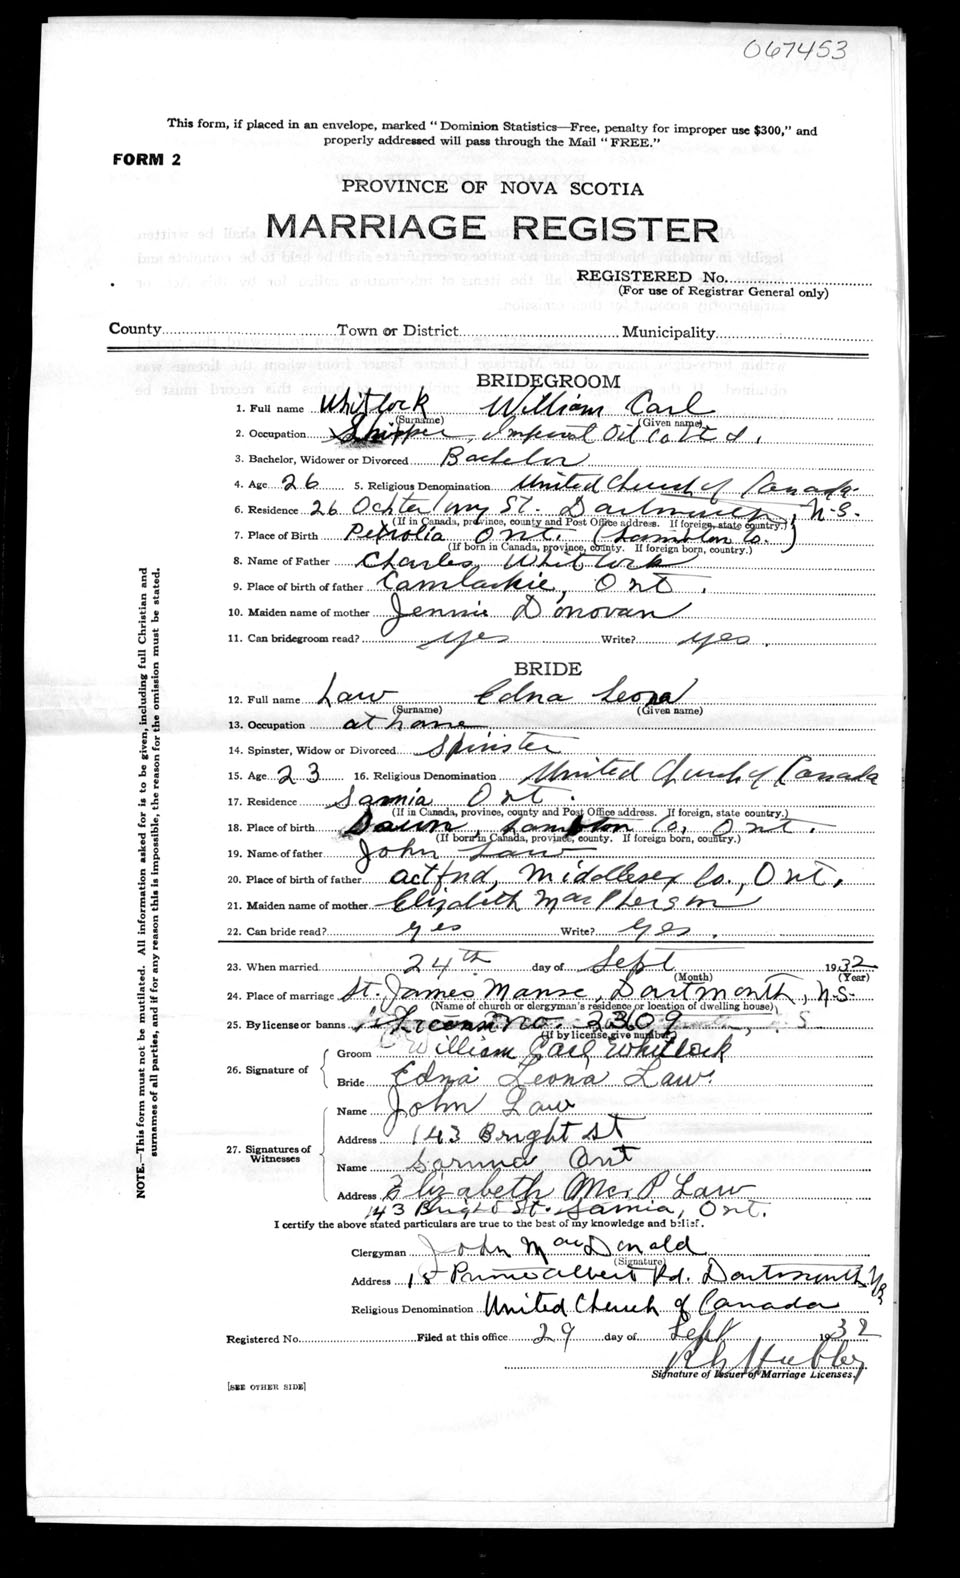 067453
This form, if placed in an envelope, marked "Dominion Statistics—Free, penalty for improper use $300," and
properly addressed will pass through the Mail "FREE."
FORM 2
PROVINCE OF NOVA SCOTIA
MARRIAGE REGISTER
REGISTERED No.
(For use of Registrar General only)
County Town or District Municipality
BRIDEGROOM
1. Full name Whitlock William Carl
(Surname) (Given name)
2. Occupation Shipper, Imperial Oil Co Ltd.
3. Bachelor, Widower or Divorced Bachelor
4. Age 26 5. Religious Denomination United Church of Canada
6. Residence 26 Ochterlony St. Dartmouth, N.S.
(If in Canada, province, county and Post Office address. If foreign, state country.)
7. Place of Birth Petrolia Ont. (Lambton Co.)
(If born in Canada, province, county. If foreign born, country.)
8. Name of Father Charles Whitlock
9. Place of birth of father Camlachie, Ont.
10. Maiden name of mother Jennie Donovan
11. Can bridegroom read? yes Write? yes.
BRIDE
12. Full name Law Edna Leona
(Surname) (Given name)
13. Occupation at home
14. Spinster, Widow or Divorced Spinster
15. Age 23 16. Religious Denomination United Church of Canada
17. Residence Sarnia Ont.
(If in Canada, province, county and Post Office address. If foreign, state country.)
18. Place of birth Dawn, Lambton Co, Ont.
(If born in Canada, province, county. If foreign born, country.)
19. Name of father John Law
20. Place of birth of father Middlesex Co., Ont.
21. Maiden name of mother Elizabeth MacPherson
22. Can bride read? yes Write? yes.
23. When married 24th day of Sept 1932
(Month) (Year)
24. Place of marriage St. James Manse, Dartmouth, N.S.
(Name of church or clergyman's residence or location of dwelling house)
25. By license or banns License no. 2309
(If by license, give number)
26. Signature of
Groom William Carl Whitlock
Bride Edna Leona Law
27. Signatures of Witnesses
Name John Law
Address 143 Bright St
Name Sarnia Ont
Address Elizabeth McP Law
143 Bright St. Sarnia, Ont.
I certify the above stated particulars are true to the best of my knowledge and belief.
Clergyman John MacDonald
(Signature)
Address 15 Prince Albert Rd. Dartmouth N.S.
Religious Denomination United Church of Canada
Registered No. Filed at this office 29 day of Sept 1932
Signature of Issuer of Marriage Licenses.
[SEE OTHER SIDE]
NOTE.—This form must not be mutilated. All information asked for is to be given, including full Christian and
surnames of all parties, and if for any reason this is impossible, the reason for the omission must be stated.